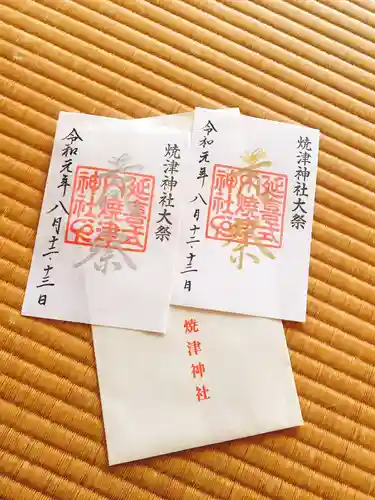 焼津神社大祭
奉祭
延喜式
内焼津
神社之
令和元年 八月十二、十三日
焼津神社大祭
奉祭
延喜式
内焼津
神社之
令和元年 八月十二、十三日
焼津神社